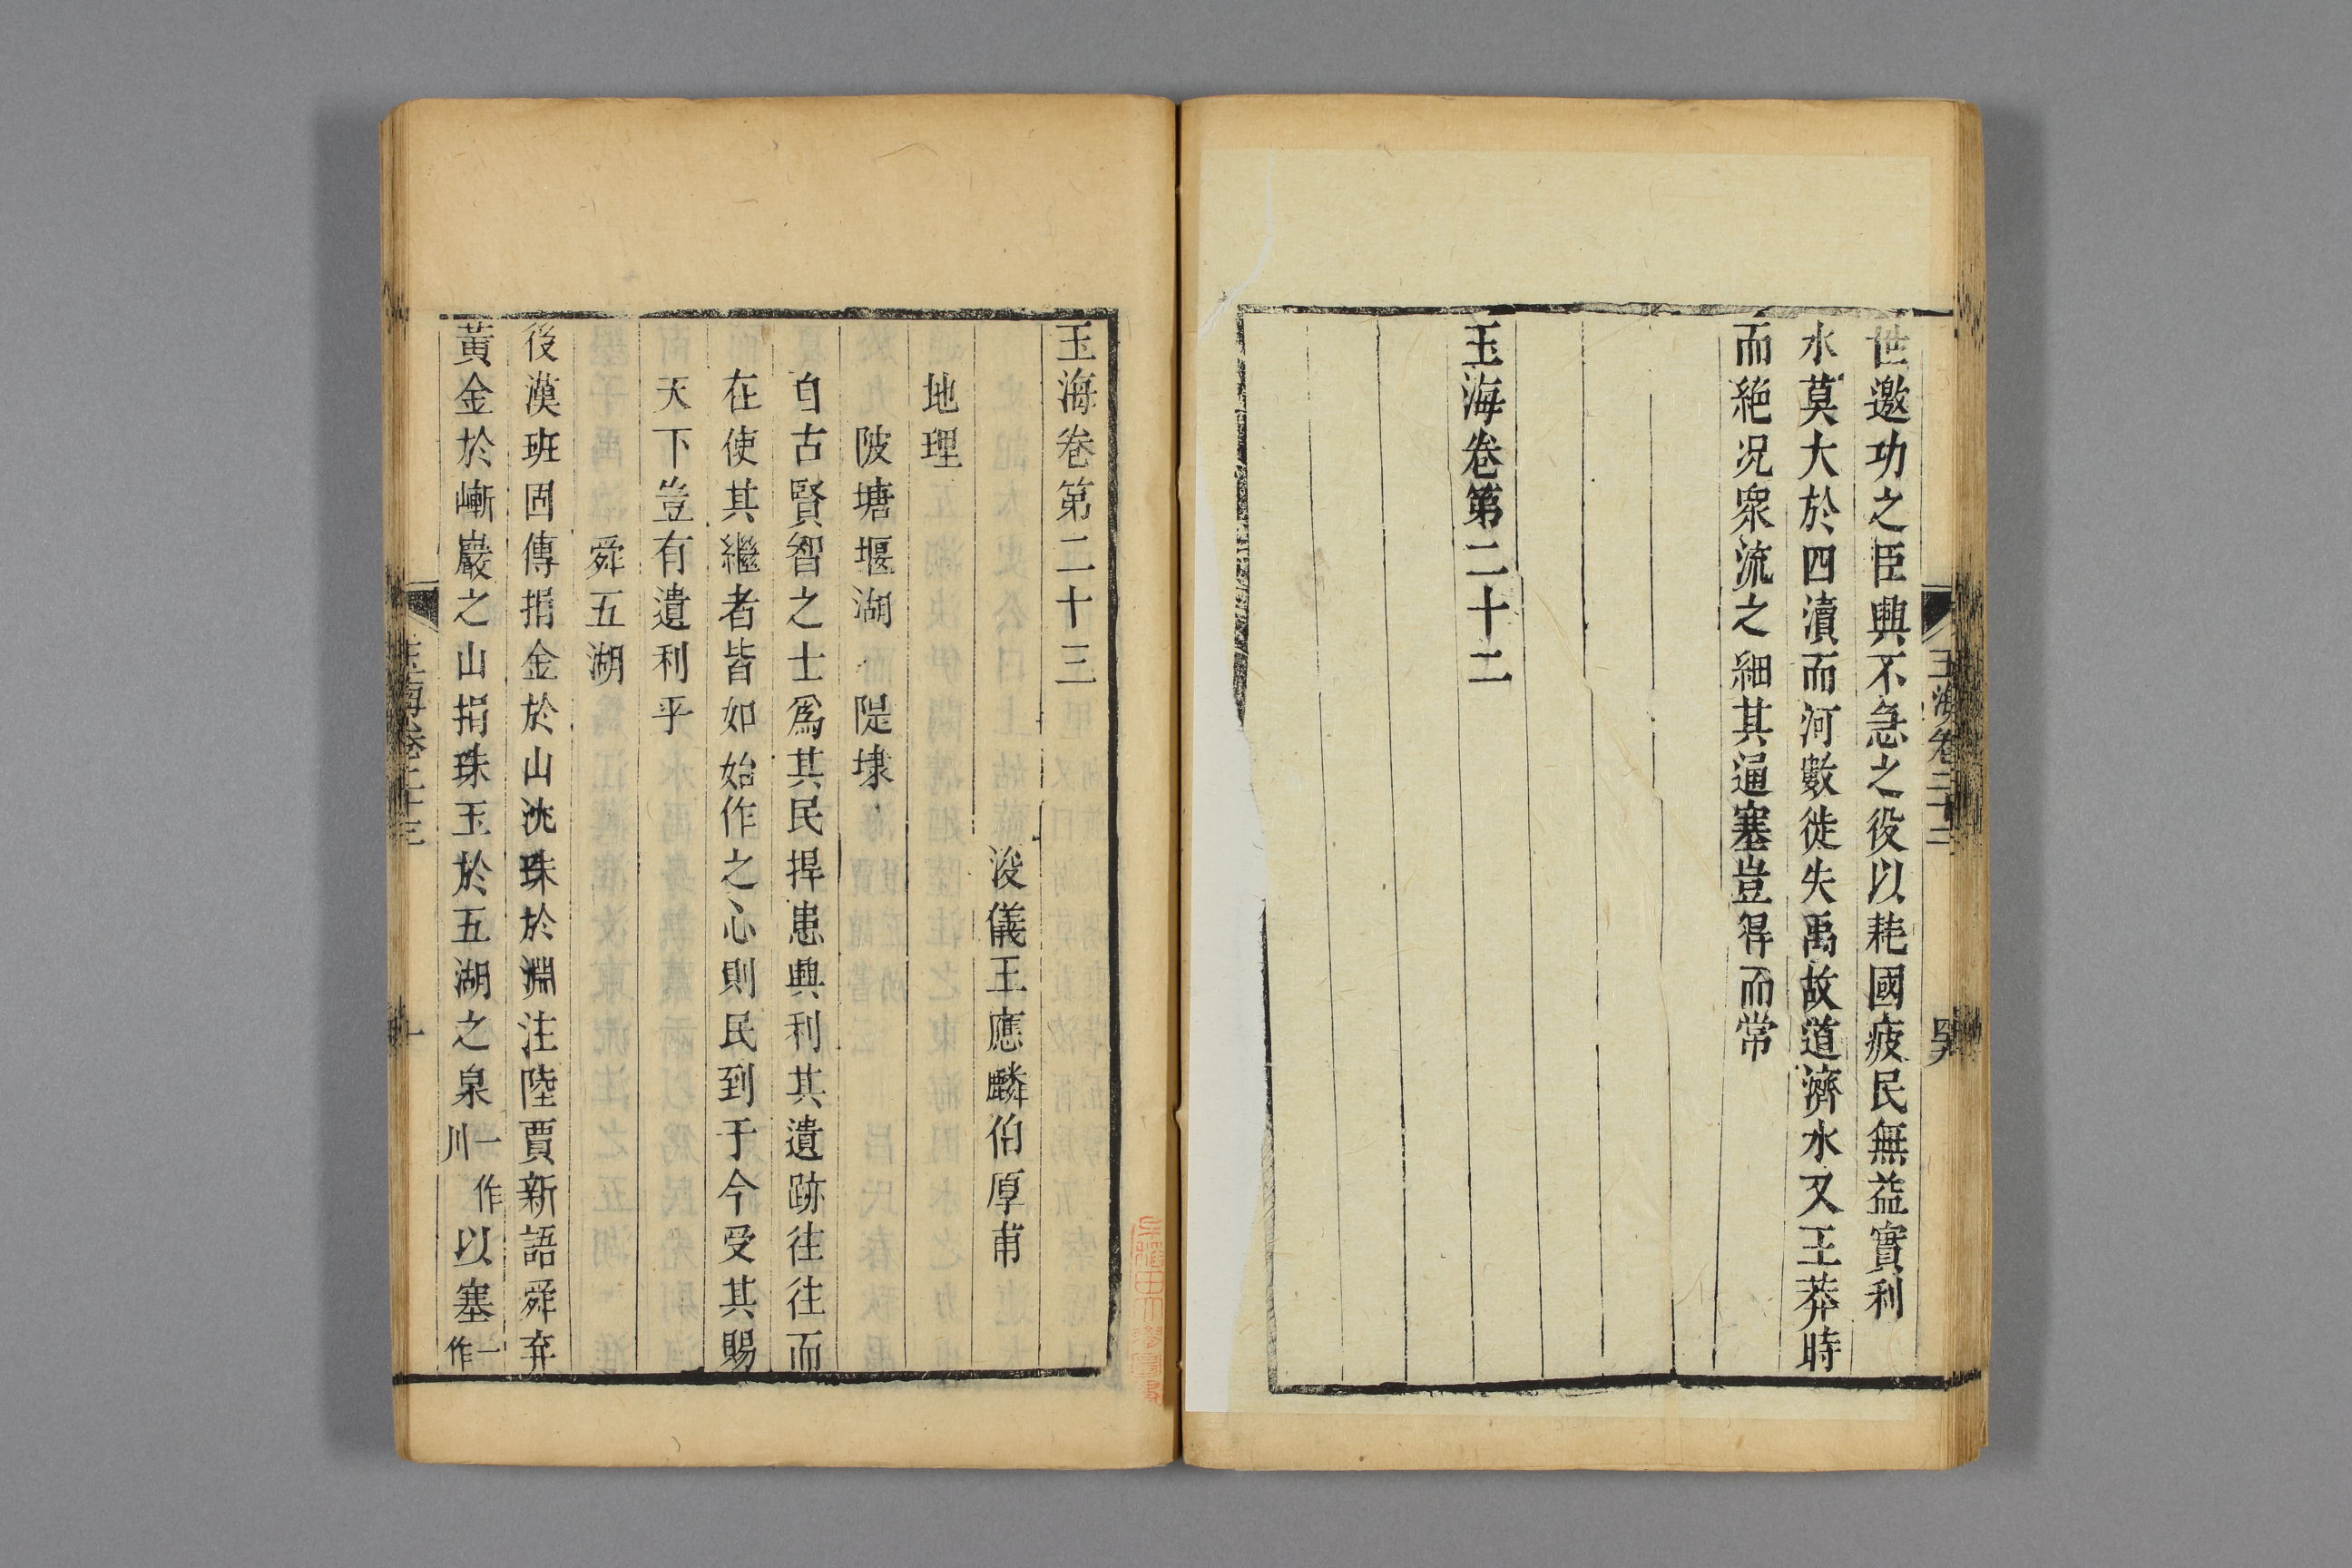 世邀功之臣興不急之役以耗國疲民無益實利
水莫大於四瀆而河數徙失禹故道濟水又王莽時
而絶况衆流之細其通塞豈得而常
玉海卷第二十二
玉海卷第二十三
浚儀王應麟伯厚甫
地理
陂塘堰湖 隄埭
自古賢智之士爲其民捍患興利其遺跡往往而
在使其繼者皆如始作之心則民到于今受其賜
天下豈有遺利乎
舜五湖
後漢班固傳捐金於山沈珠於淵注陸賈新語舜弃
黃金於嶃巖之山捐珠玉於五湖之泉一作川以塞一作
玉海卷二十三
一